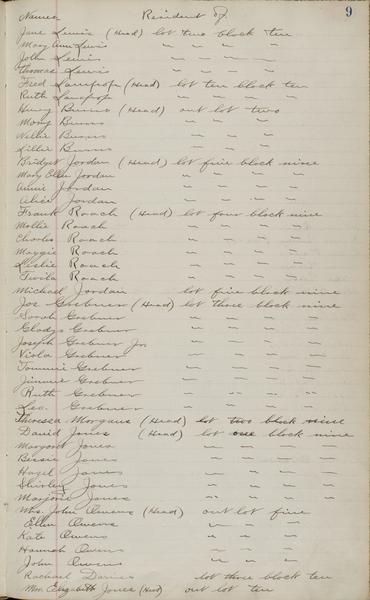 Names Resident of 9
Jane Lewis (Head) lot two block ten
Mary Ann Lewis " " " "
John Lewis " " " "
Thomas Lewis " " " "
Fred (Head) lot ten block ten
Ruth " " " "
Henry Burns (Head) out lot two
Mary Burns " " "
Nellie Burns " " "
Lillie Burns " " "
Bridget Jordan (Head) lot five block nine
Mary Ellen Jordan " " " "
Annie Jordan " " " "
Alice Jordan " " " "
Frank Roach (Head) lot four block nine
Mollie Roach " " " "
Charles Roach " " " "
Maggie Roach " " " "
Leslie Roach " " " "
Twila Roach " " " "
Michael Jordan lot five block nine
Joe Grebner (Head) lot three block nine
Sarah Grebner " " " "
Gladys Grebner " " " "
Joseph Grebner Jr " " " "
Viola Grebner " " " "
Tommie Grebner " " " "
Jimmie Grebner " " " "
Ruth Grebner " " " "
Leo. Grebner " " "
Theressa Morgans (Head) lot two block nine
David Jones (Head) lot one block nine
Margaret Jones " " " "
Bessie Jones " " " "
Hazel Jones " " " "
Shirley Jones " " " "
Marjorie Jones " " " "
Mrs. John Owens (Head) out lot five
Ellen Owens " " "
Kate Owens " " "
Hannah Owens " " "
John Owens " " "
Rachael lot three block ten
Mrs. Elizabeth Jones (Head) out lot ten